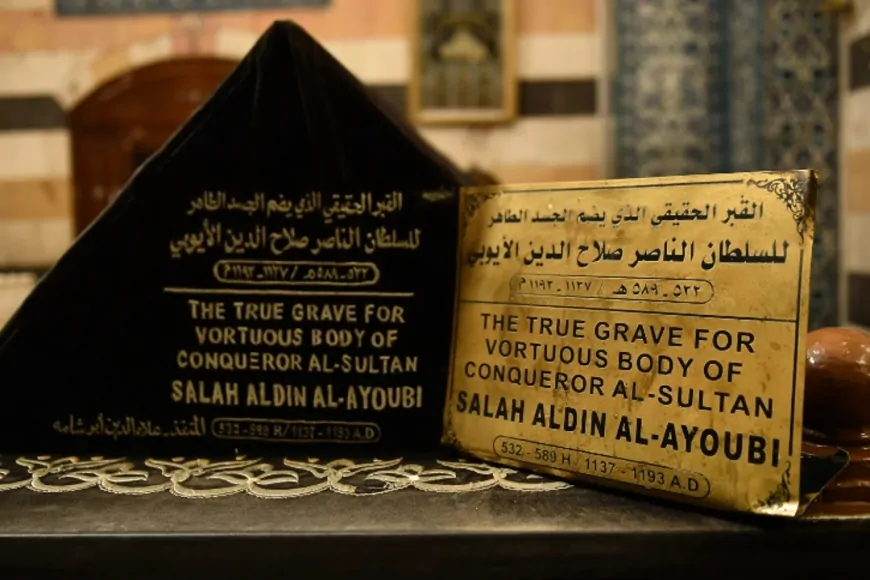 القبر الحقيقي الذي يضم الجسد الطاهر
للسلطان الناصر صلاح الدين الأيوبي
٥٣٢ - ٥٨٩هـ / ١١٣٧ - ١١٩٣م
THE TRUE GRAVE FOR
VORTUOUS BODY OF
CONQUEROR AL-SULTAN
SALAH ALDIN AL-AYOUBI
532-589 H/1137-1193 A.D
المنفذ.. علاء الدين أبو شامه
القبر الحقيقي الذي يضم الجسد الطاهر
للسلطان الناصر صلاح الدين الأيوبي
٥٣٢ - ٥٨٩ هـ / ١١٣٧ - ١١٩٣ م
THE TRUE GRAVE FOR
VORTUOUS BODY OF
CONQUEROR AL-SULTAN
SALAH ALDIN AL-AYOUBI
532 - 589 H / 1137 - 1193 A.D